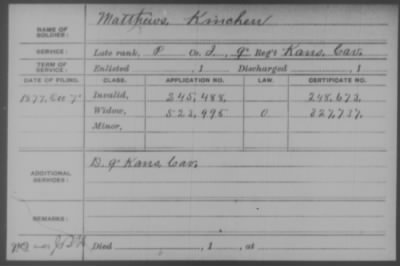 NAME OF SOLDIER: Matthews, Kinchen
SERVICE: Late rank, P Co. I, 9" Reg't Kans. Cav.
TERM OF SERVICE: Enlisted , 1 Discharged , 1
DATE OF FILING. CLASS. APPLICATION NO. LAW. CERTIFICATE NO.
1877, Dec 7" Invalid, 245,488. 248,673.
Widow, 523,995 O 327,737.
Minor,
ADDITIONAL SERVICES: D. 9" Kans Cav.
REMARKS:
Died , 1 , at